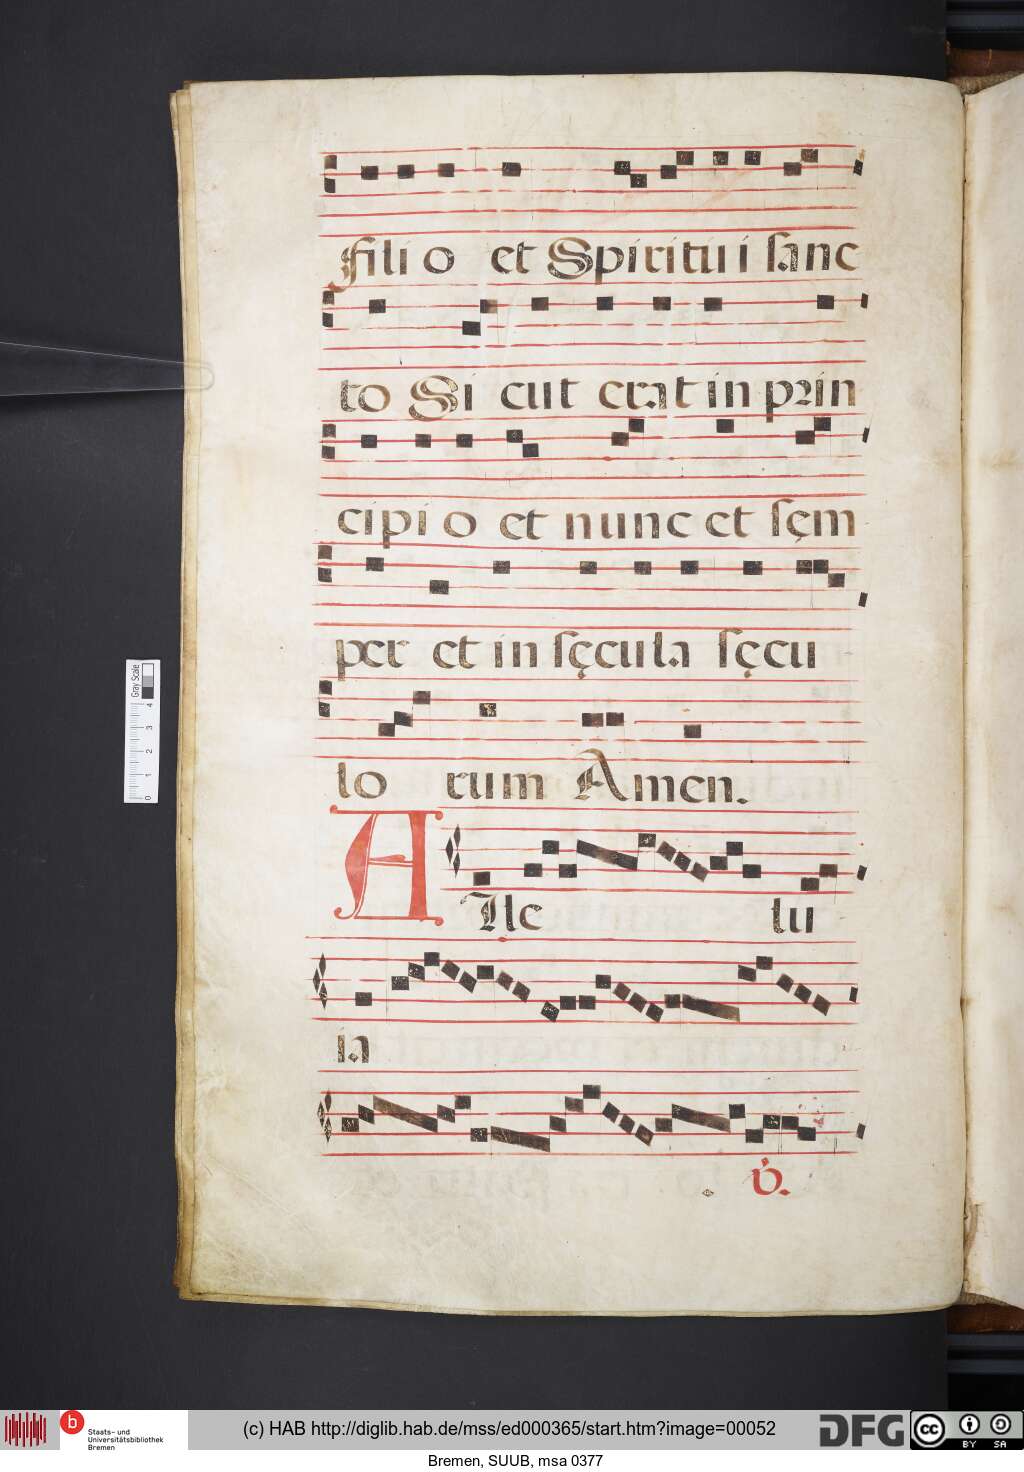 Filio et Spiritui sanc
to Sicut erat in prin
cipio et nunc et sęm
per et in sęcula sęcu
lo rum Amen.
A Alle lu
ia
V.
Gray Scale
4
3
2
1
0
b
Staats- und
Universitätsbibliothek
Bremen
(c) HAB http://diglib.hab.de/mss/ed000365/start.htm?image=00052
DFG
cc BY SA
Bremen, SUUB, msa 0377